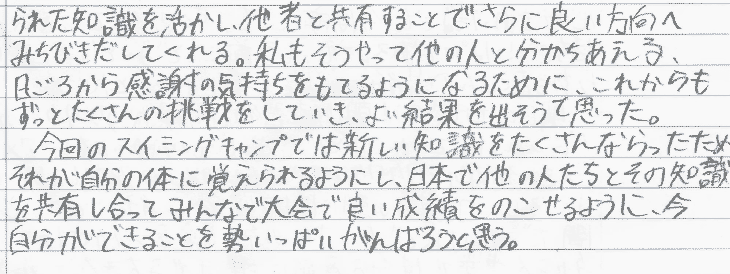 られた知識を活かし、他者と共有することでさらに良い方向へ
みちびきだしてくれる。私もそうやって他の人と分かちあえる、
日ごろから感謝の気持ちをもてるようになるために、これからも
ずっとたくさんの挑戦をしていき、よい結果を出そうて思った。
今回のスイミングキャンプでは新しい知識をたくさんならったため
それが自分の体に覚えられるようにし、日本で他の人たちとその知識
を共有し合ってみんなで大会で良い成績をのこせるように、今
自分ができることを勢いっぱいがんばろうと思う。